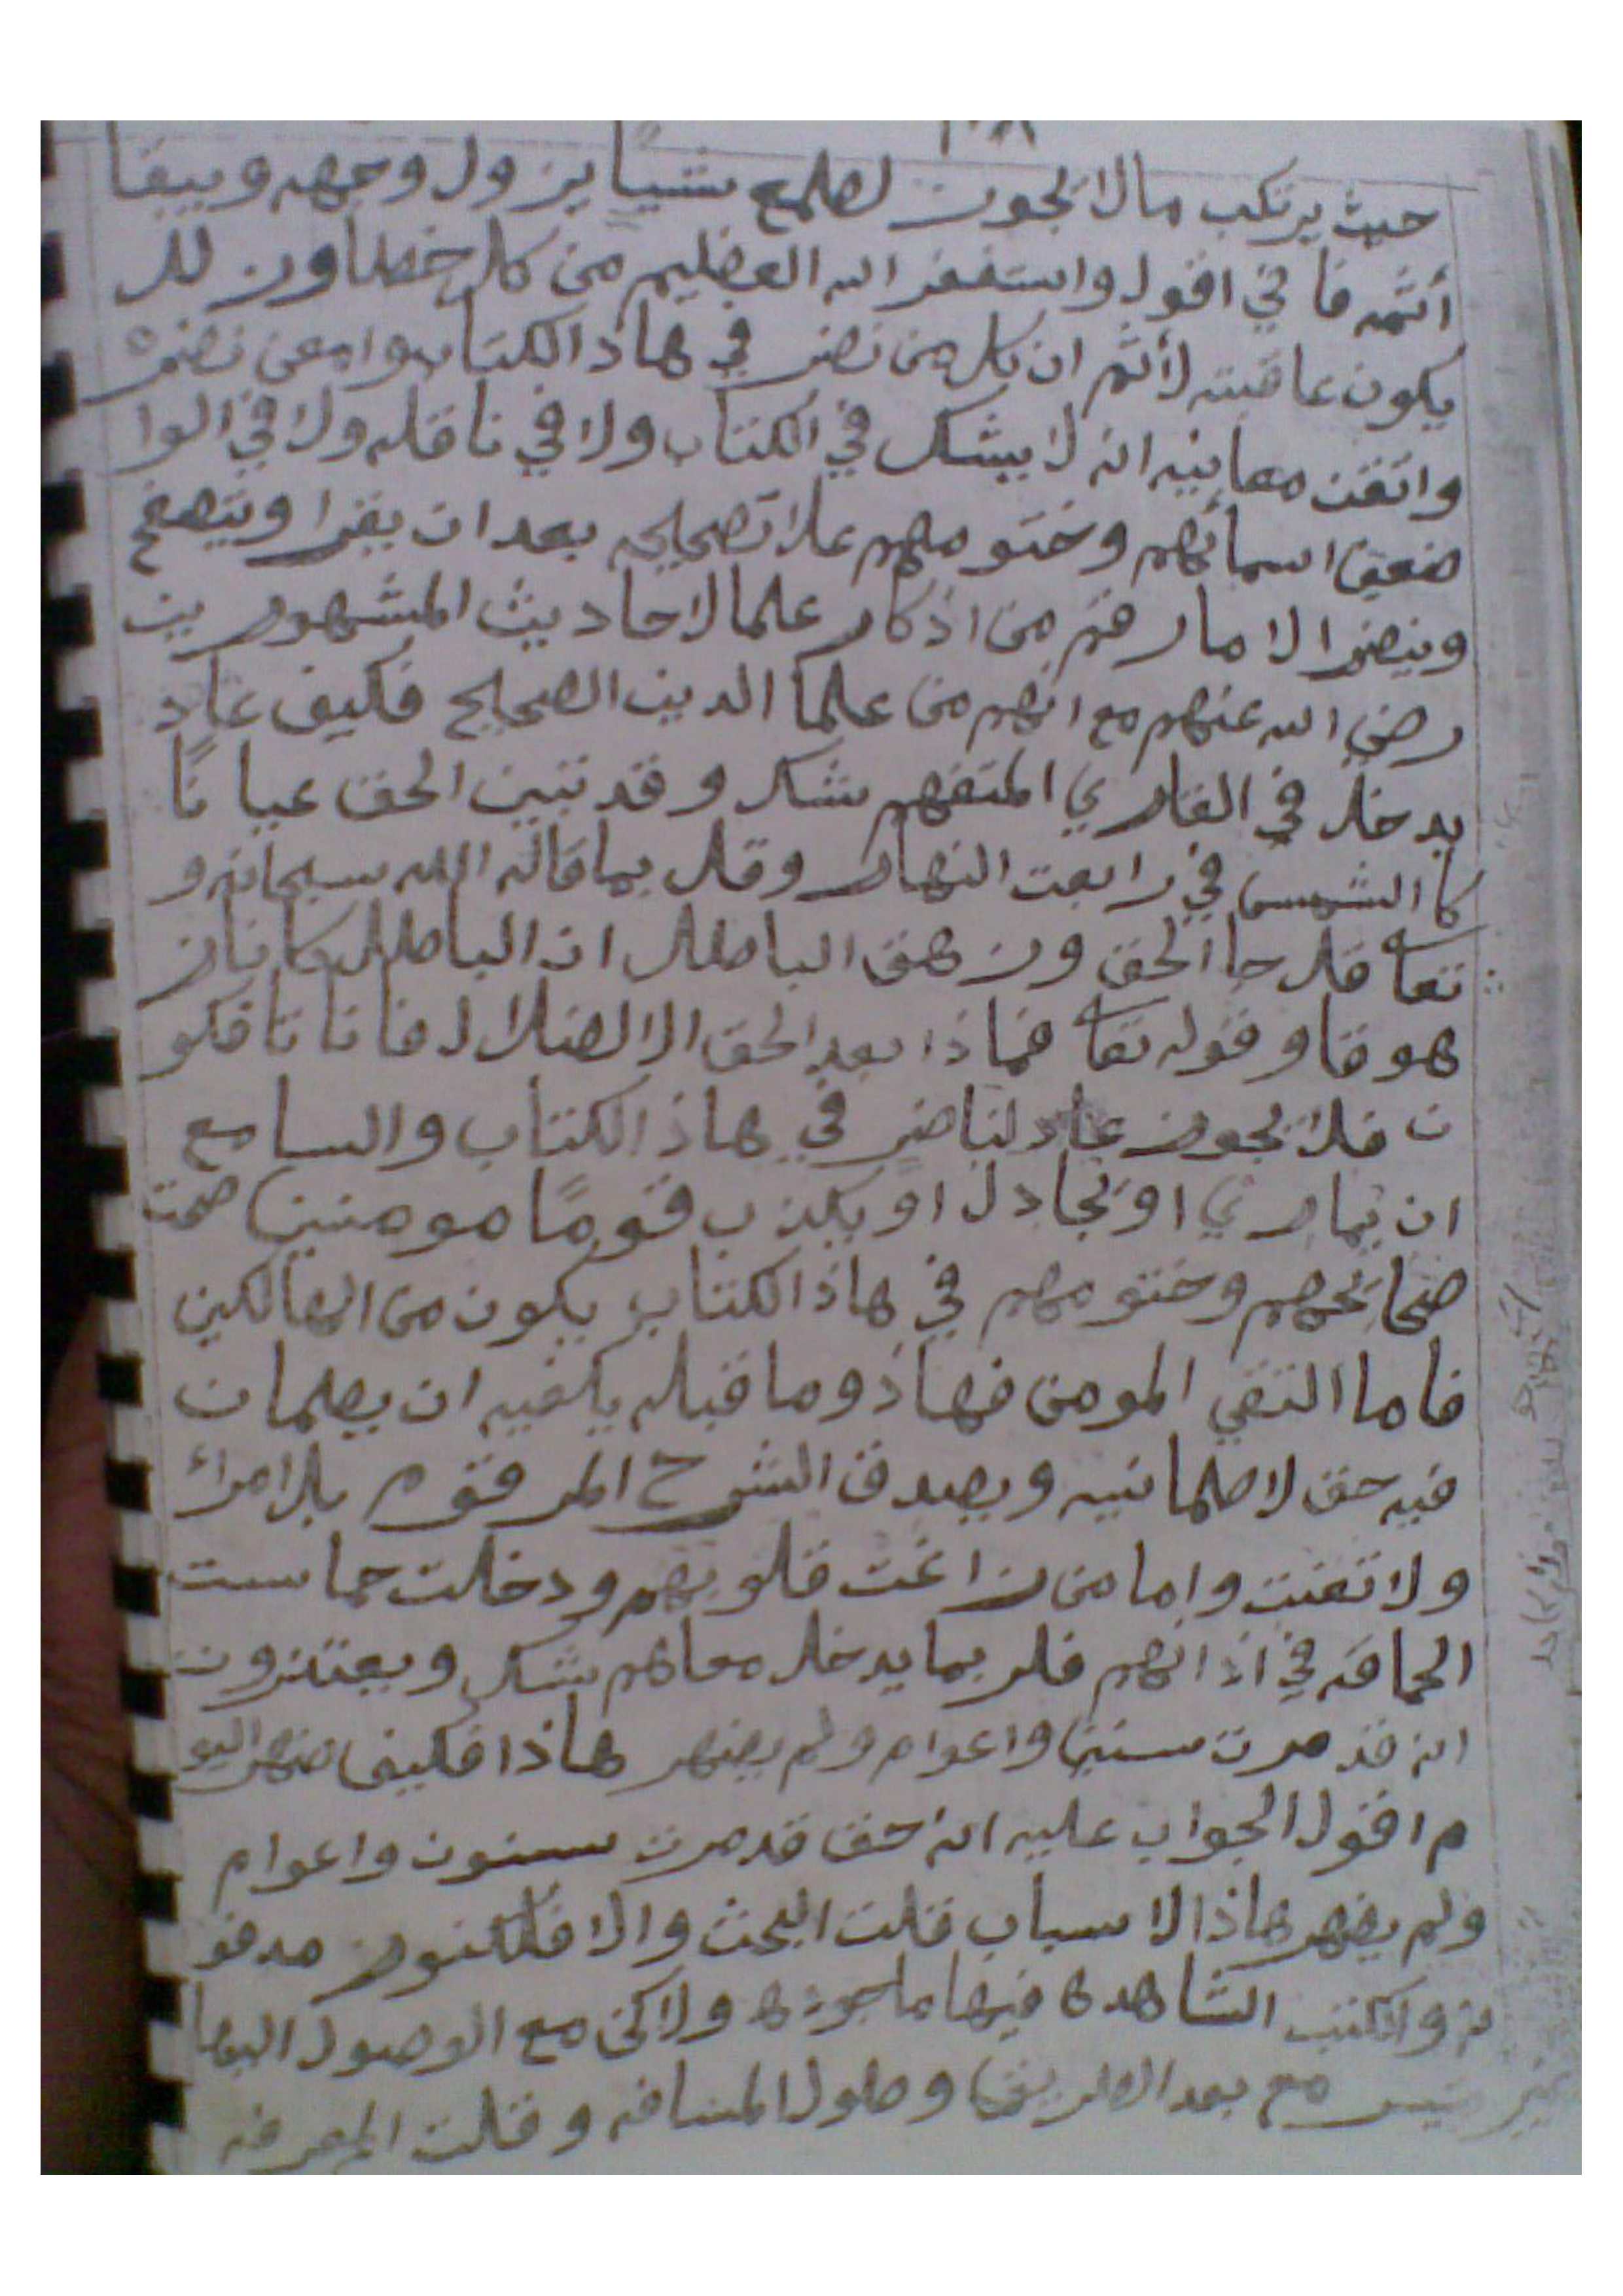 حيث يرتكب مالا يجوز لطمع شيأ يزول وجهه ويبقا
أثمه فا ني اقول واستغفر الله العضيم من كل خطا وزلل
يكون عاقبته لأثم ان كل من نضر في هاذ الكتاب وامعن نضره
واتقن معانيه انه لا يشك في الكتاب ولا في ناقله ولا في الوا
ضعين اسمائهم وختومهم علا تصحيحه بعد ان يقرا ويتصفح
وينضر الا ما رقم من اذكار علما لاحاديث المشهورين
رضي الله عنهم مع انهم من علما الدين الصحيح فكيف عاد
يدخل في القاري المتفهم شك وقد تبين الحق عيا نًا
كا الشمس في رابعت النهار وقل بما قاله الله سبحانه و
تعا قل جا الحق وزهق الباطل ان الباطل كا نا ز
هوقا وقوله تعا فماذا بعد الحق الا الضلال فا نا تا فكو
ن فلا يجوز عاد لناضر في هاذ الكتاب والسامع
ان يماري او يجادل او يكذب قومًا مومنين صحت
ضمايحهم وختومهم في هاذ الكتاب يكون من الهالكين
فاما التقي المومن فهاذ وما قبله يكفيه ان يطمان
فيه حق لاطمانيه ويصدق الشرح المرقوم بلا امراء
ولا تعنت واما من زاغت قلوبهم ودخلت حماست
الحماقه في اذانهم فلربما يدخل معاهم شك ويعتنزون
انه قد مرت سنين واعوام ولم يضهر هاذا فكيف ضهر اليو
م اقول الجواب عليه انه حق قد مرت سنون واعوام
ولم يضهر هاذ الاسباب قلت البحث والا فالكنوز مدفو
نه والكتب الشاهده فيها ماجوده ولاكن مع الوصول اليها
مع بعد الطريق وطول المسافه وقلت المعرفه